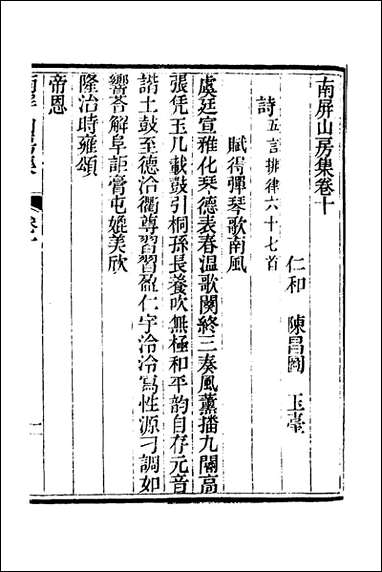 南屏山房集卷十
仁和 陳昌圖 玉臺
詩五言排律六十七首
賦得彈琴歌南風
虞廷宣雅化琴德表春温歌闋終三奏風薰播九閽高
張凭玉几載鼓引桐孫長養吹無極和平韵自存元音
諧土鼓至德洽衢尊習習盈仁宇泠泠寫性源刁調如
響荅解阜詎膏屯媲美欣
隆治時雍頌
帝恩
南屏山房集 卷十 一